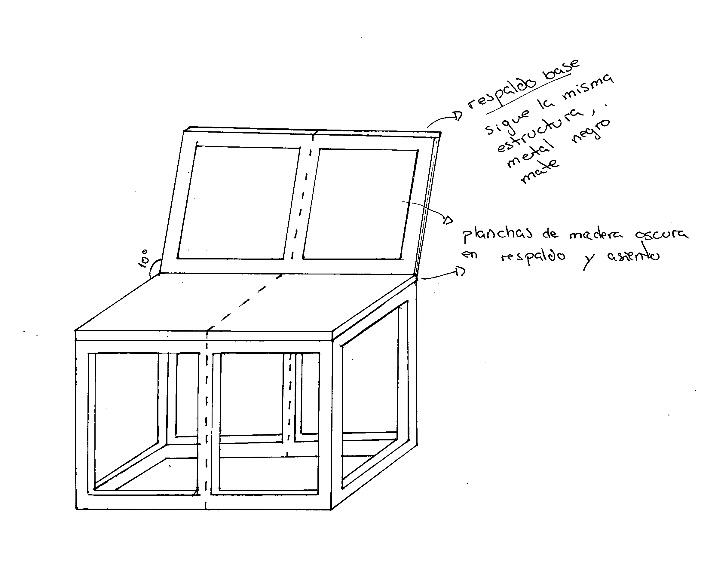 respaldo base
sigue la misma
estructura,
metal negro
mate
planchas de madera oscura
en respaldo y asiento
10°